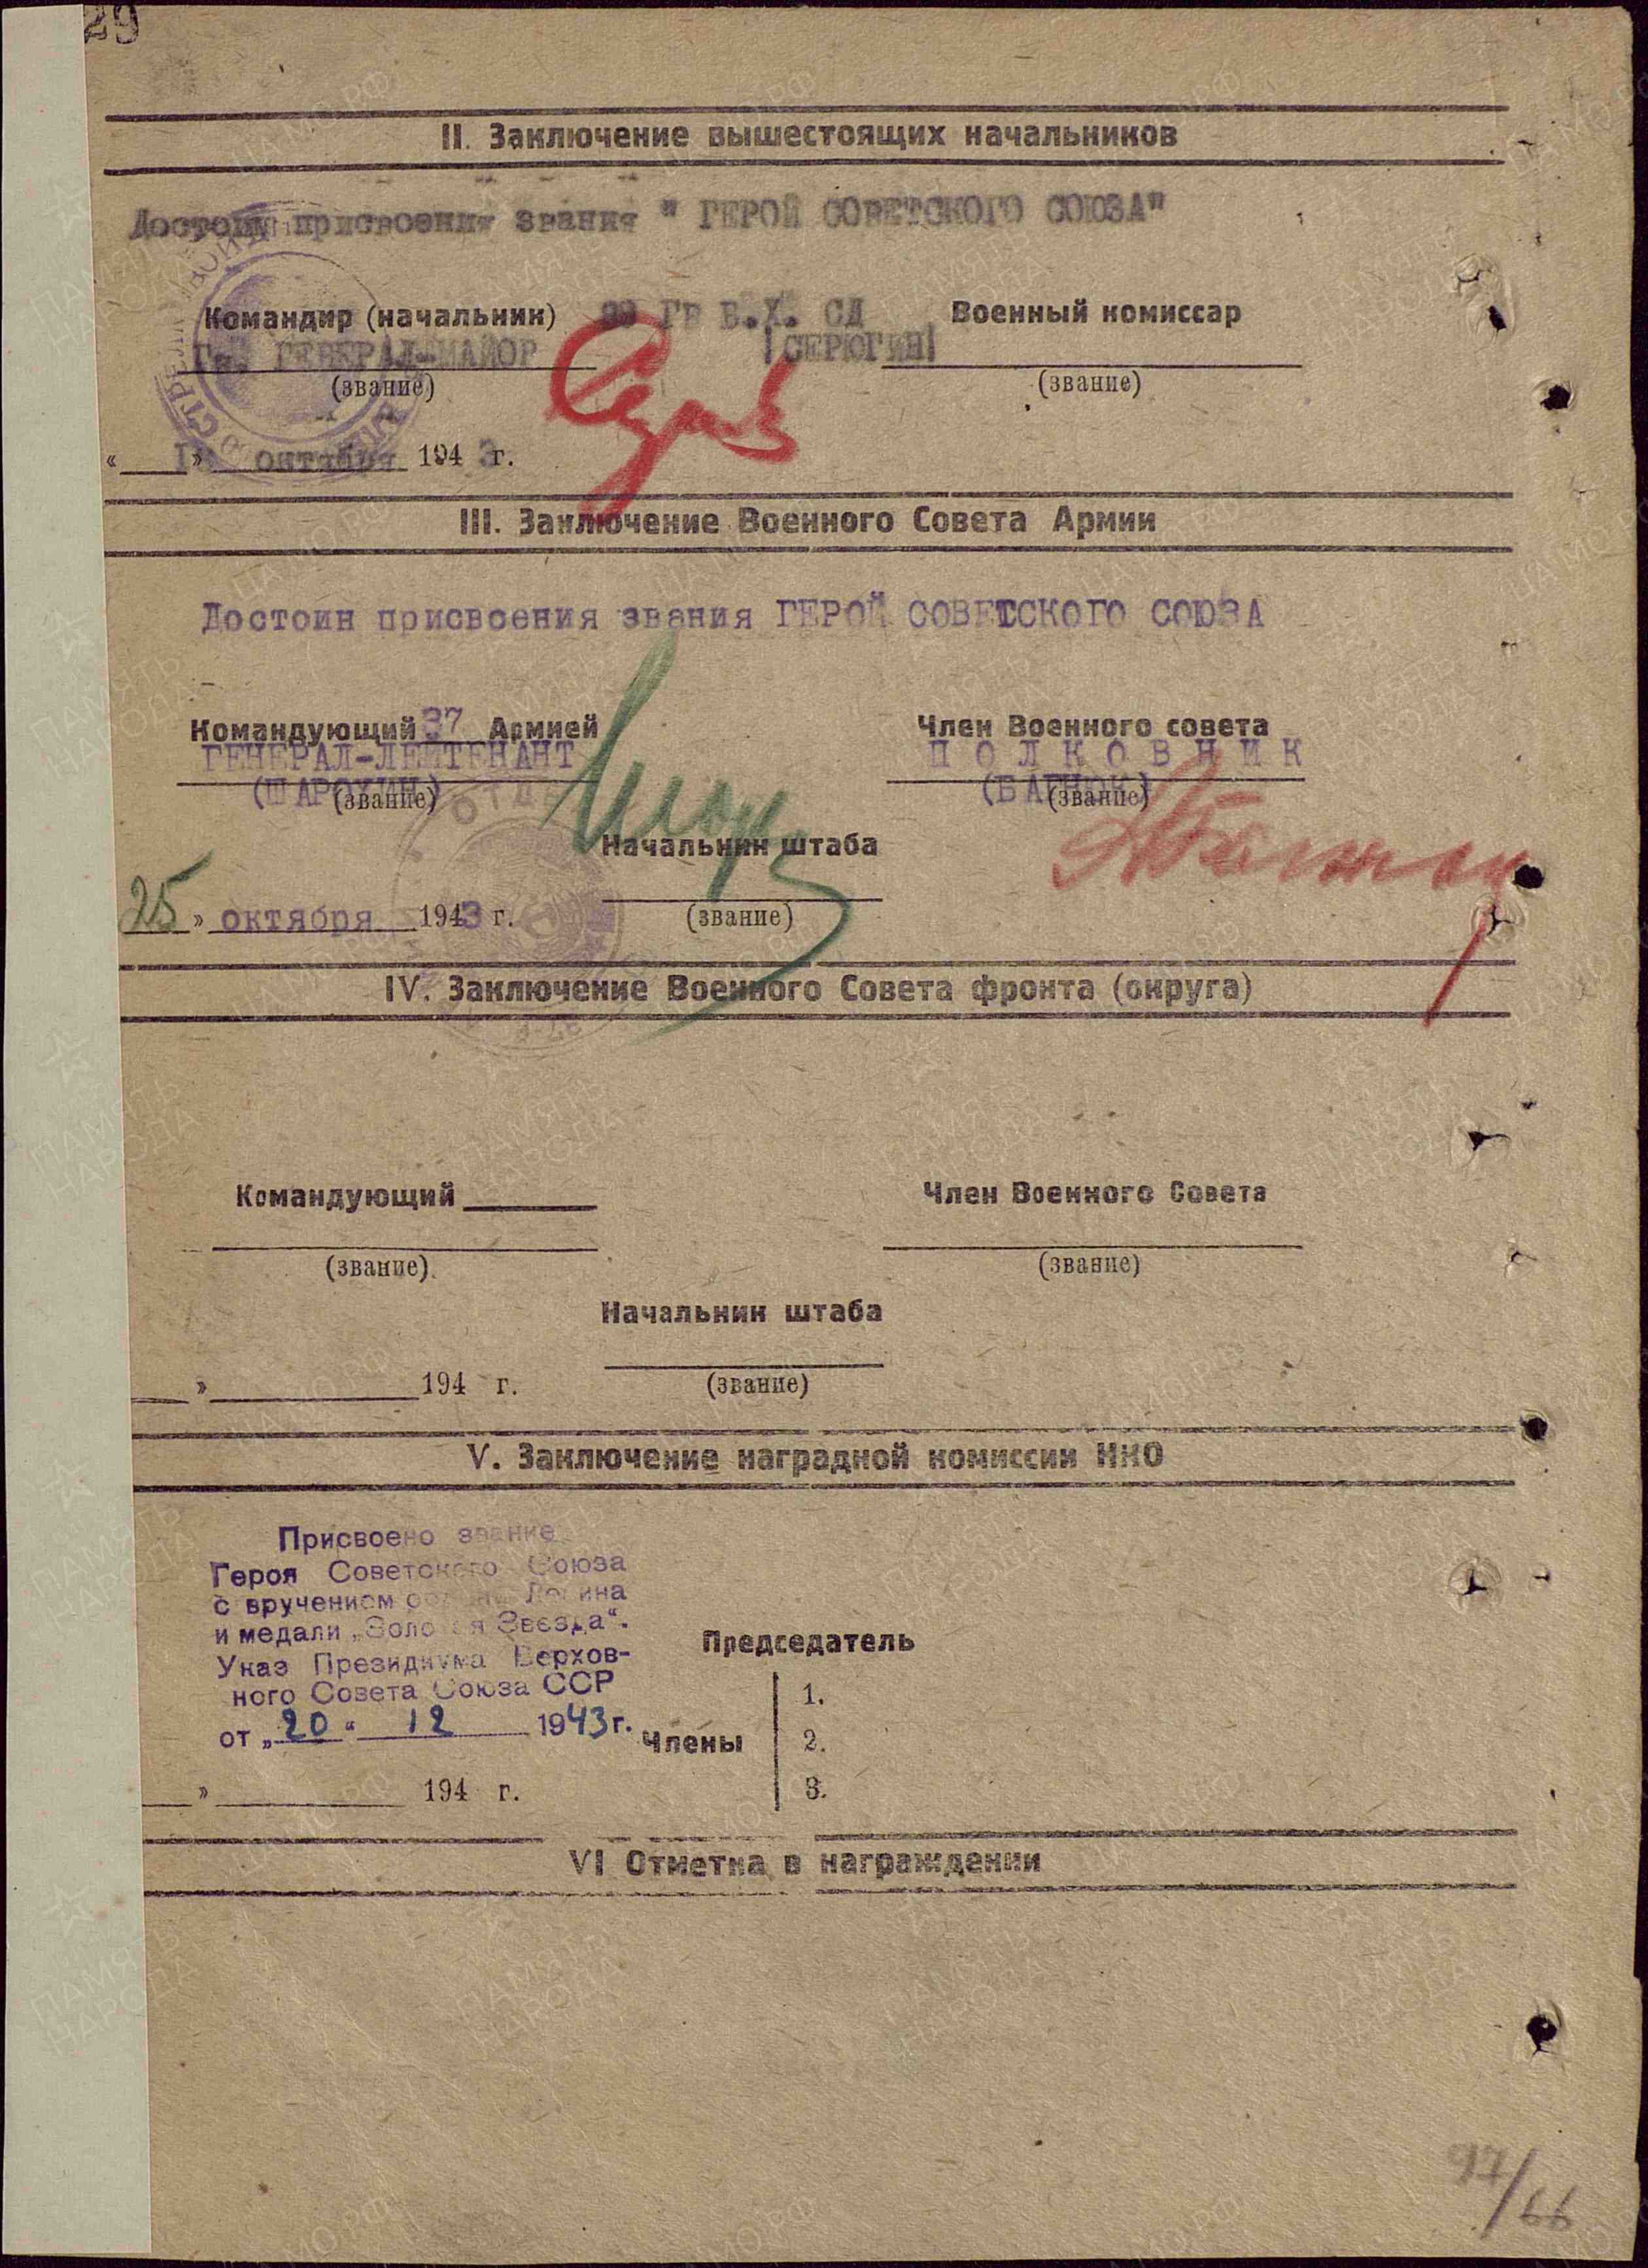 29
II. Заключение вышестоящих начальников
Достоин присвоения звания " ГЕРОЙ СОВЕТСКОГО СОЮЗА"
Командир (начальник) ГВ В.Х. СД Военный комиссар
Гв. ГЕНЕРАЛ-МАЙОР |СЕРЮГИН|
(звание) (звание)
« » октября 1943 г.
III. Заключение Военного Совета Армии
Достоин присвоения звания ГЕРОЙ СОВЕТСКОГО СОЮЗА
Командующий 37 Армией Член Военного совета
ГЕНЕРАЛ-ЛЕЙТЕНАНТ ПОЛКОВНИК
(ШАРОХИН) (звание) (БАГНЮК) (звание)
Начальник штаба
25 » октября 1943 г. (звание)
IV. Заключение Военного Совета фронта (округа)
Командующий Член Военного Совета
(звание) (звание)
Начальник штаба
» 194 г. (звание)
V. Заключение наградной комиссии НКО
Присвоено звание
Героя Советского Союза
с вручением ордена Ленина
и медали „Золотая Звезда“.
Указ Президиума Верхов-
ного Совета Союза ССР
от „20“ 12 1943г.
Председатель
1.
Члены 2.
3.
» 194 г.
VI Отметка о награждении
97/66